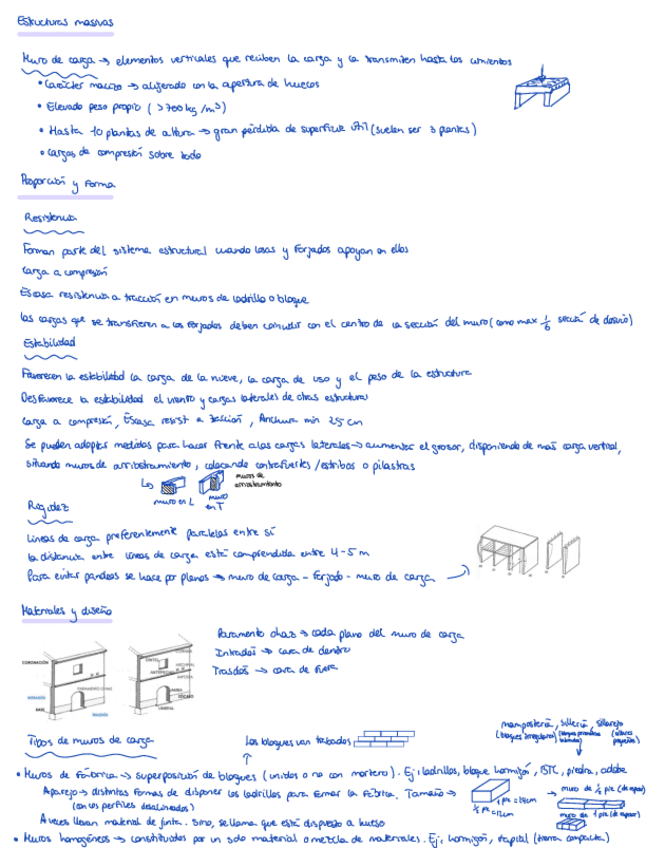 Estructuras masivas
Muro de carga → elementos verticales que reciben la carga y la transmiten hasta los cimientos
• Carácter macizo → aligerado con la apertura de huecos
• Elevado peso propio (>700 kg/m³)
• Hasta 10 plantas de altura → gran pérdida de superficie útil (suelen ser 3 plantas)
• Cargas de compresión sobre todo
Proporción y Forma
Resistencia
Forman parte del sistema estructural cuando losas y forjados apoyan en ellos
Carga a compresión
Escasa resistencia a tracción en muros de ladrillo o bloque
Las cargas que se transfieren a los forjados deben coincidir con el centro de la sección del muro (como max 1/6 sección de desvío)
Estabilidad
Favorecen la estabilidad la carga de la nieve, la carga de uso y el peso de la estructura
Desfavorece la estabilidad el viento y cargas laterales de otras estructuras
Carga a compresión, Escasa resist a tracción, Anchura min 25 cm
Se pueden adoptar medidas para hacer frente a las cargas laterales → aumentar el grosor, disponiendo de más carga vertical,
situando muros de arriostramiento, colocando contrafuertes/estribos o pilastras
muros de arriostramiento
muro en L
muro en T
Rigidez
Líneas de carga preferentemente paralelas entre sí
La distancia entre líneas de carga está comprendida entre 4-5 m
Para evitar pandeos se hace por planos → muro de carga - forjado - muro de carga
Materiales y diseño
Paramento o haz → cada plano del muro de carga
Intradós → cara de dentro
Trasdós → cara de fuera
CORONACIÓN
BASE
DINTEL
ANTEPECHO
UMBRAL
Tipos de muros de carga
Los bloques van trabados
mampostería, sillería, sillarejo
(bloques irregulares)
• Muros de Fábrica → superposición de bloques (unidos o no con mortero). Ej: ladrillos, bloque hormigón, BTC, piedra, adobe
Aparejo → distintas formas de disponer los ladrillos para formar la fábrica. Tamaño →
1 pie = 24cm
1/2 pie = 12cm
muro de 1/2 pie
muro de 1 pie
A veces llevan material de junta. Sino, se llama que está dispuesto a hueso
• Muros homogéneos → constituidos por un solo material o mezcla de materiales. Ej: hormigón, tapial (tierra compacta)